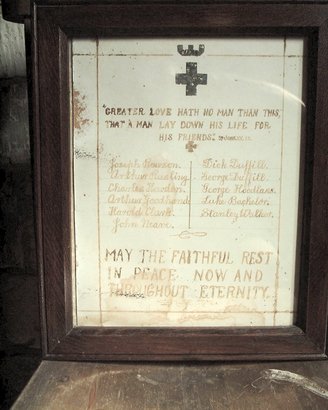 "GREATER LOVE HATH NO MAN THAN THIS,
THAT A MAN LAY DOWN HIS LIFE FOR
HIS FRIENDS."
Joseph
Arthur
Charles
Arthur Goodhand
Harold Clark
John Neave
Dick Duffill
George Duffill
George
Luke Bachelor
Stanley
MAY THE FAITHFUL REST
IN PEACE NOW AND
THROUGHOUT ETERNITY.